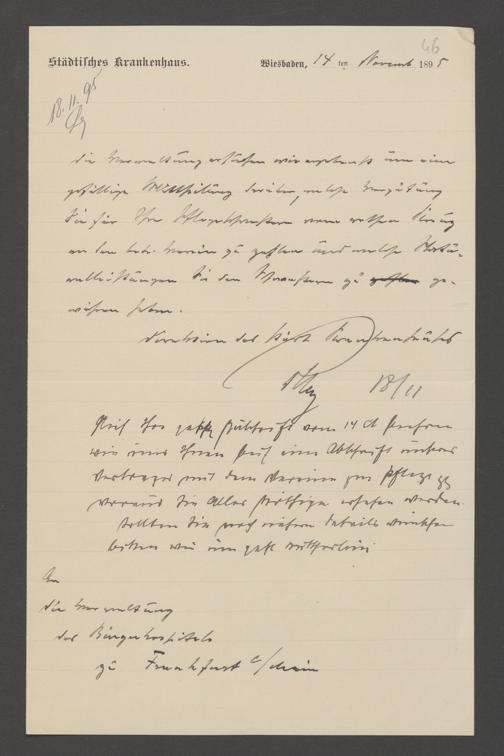 46
Städtisches Krankenhaus.
Wiesbaden, 14 ten Novemb. 1895
18.11.95
die Verwaltung ersuchen wir ergebenst um eine
gefällige Mittheilung darüber, welche Vergütung
Sie für Ihre Pflegeschwestern vom rothen Kreuz
an den betr. Verein zu zahlen und welche Natu-
ralleistungen Sie den Schwestern zu ge-
währen haben.
Direktion des städt. Krankenhauses
18/11
Auf Ihre gefl. Zuschrift vom 14 ct
wir Ihnen eine Abschrift unseres
Vertrages mit dem Vereine zur Pflege
woraus Sie Alles Nöthige ersehen werden.
Sollten Sie noch nähere Details wünschen
bitten wir um gefl. Mittheilung
An
die Verwaltung
des Bürgerhospitals
zu Frankfurt a/Main